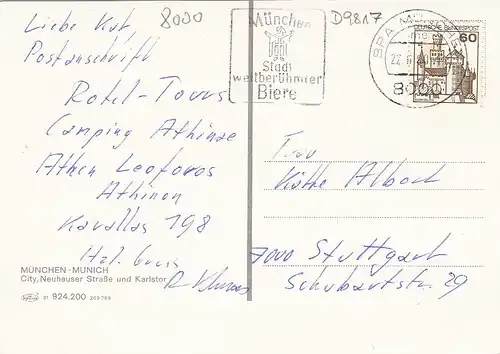 Liebe Kat,
Postanschrift
Rotel-Tours
Camping Athinae
Athen Leoforos
Athinon
Kavallas 198
Hzl.
8000
D9817
München
Stadt
weltberühmter
Biere
BPA MÜNCHEN
22.
8000
DEUTSCHE BUNDESPOST
60
Frau
Käthe Albach
7000 Stuttgart
Schubartstr. 29
MÜNCHEN-MUNICH
City, Neuhauser Straße und Karlstor
21 924.200